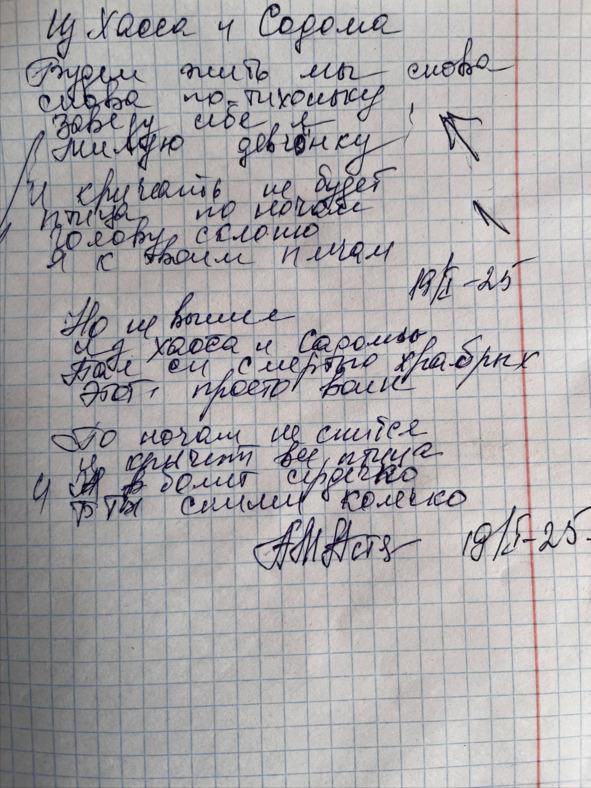 Из Хаоса и Содома
Будем жить мы снова
снова по-тихоньку
заведу себе я
милую девчонку
И кричать не будет
птица по ночам
голову склоню
я к твоим плечам
19/I-25
Но не вышел
из хаоса и Садомы
Пал он смертью храбрых
Этот, просто воин
По ночам не спится
и кричит все птица
и болит сердечко
Ты сними колечко
19/I-25.